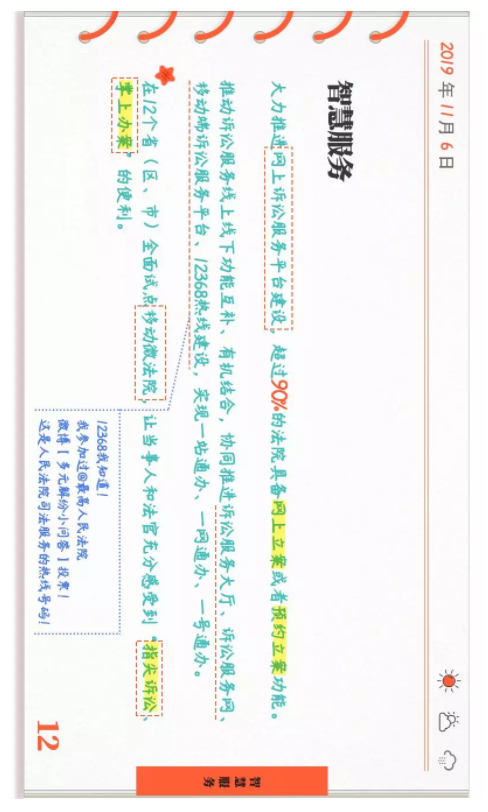 2019 年 11 月 6 日
智慧服务
大力推进网上诉讼服务平台建设，超过90%的法院具备网上立案或者预约立案功能。
推动诉讼服务线上线下功能互补、有机结合，协同推进诉讼服务大厅、诉讼服务网、
移动端诉讼服务平台、12368热线建设，实现一站通办、一网通办、一号通办。
在12个省（区、市）全面试点移动微法院，让当事人和法官充分感受到“指尖诉讼、
掌上办案”的便利。
12368我知道！
我参加过@最高人民法院
微博【多元解纷小问答】投票！
这是人民法院司法服务的热线号码！
12
智慧服务